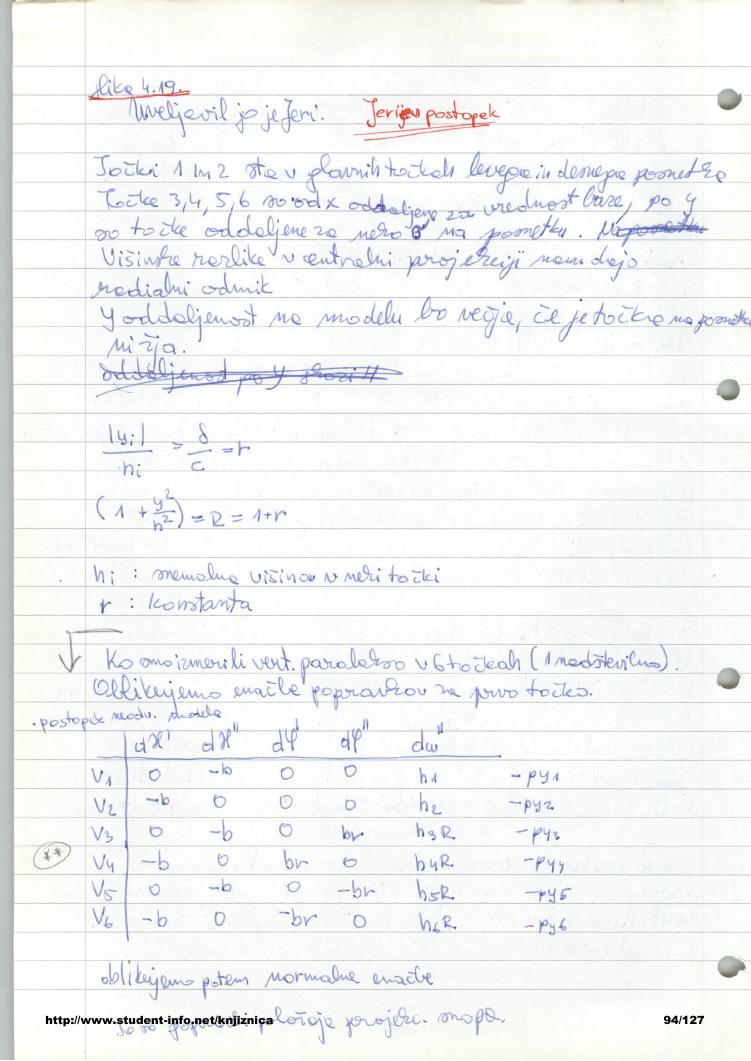 slika 4.19.
Uveljavil jo je Jeri. Jerijev postopek
Točki 1 in 2 sta v glavnih točkah levega in desnega posnetka
Točke 3,4,5,6 so od x oddaljene za vrednost baze, po y
so točke oddaljene za na posnetku.
Višinske razlike v centralni projekciji nam dajo
radialni odmik
y oddaljenost na modelu bo večja, če je točka na posnetku
nižja.
oddaljenost po y
|yi| / hi = δ / c = r
(1 + y²/h²) = R = 1+r
hi : snemalna višina v neki točki
r : konstanta
Ko smo izmerili vert. paralakso v 6 točkah (1 nadštevilna).
Oblikujemo enačbe popravkov za prvo točko.
· postopek neodv. modela
dϰ' dϰ" dφ' dφ" dω"
V1 0 -b 0 0 h1 -py1
V2 -b 0 0 0 h2 -py2
V3 0 -b 0 br h3R -py3
** V4 -b 0 br 0 h4R -py4
V5 0 -b 0 -br h5R -py5
V6 -b 0 -br 0 h6R -py6
oblikujemo potem normalne enačbe
to so položaja projekc. snopa.
http://www.student-info.net/knjiznica 94/127